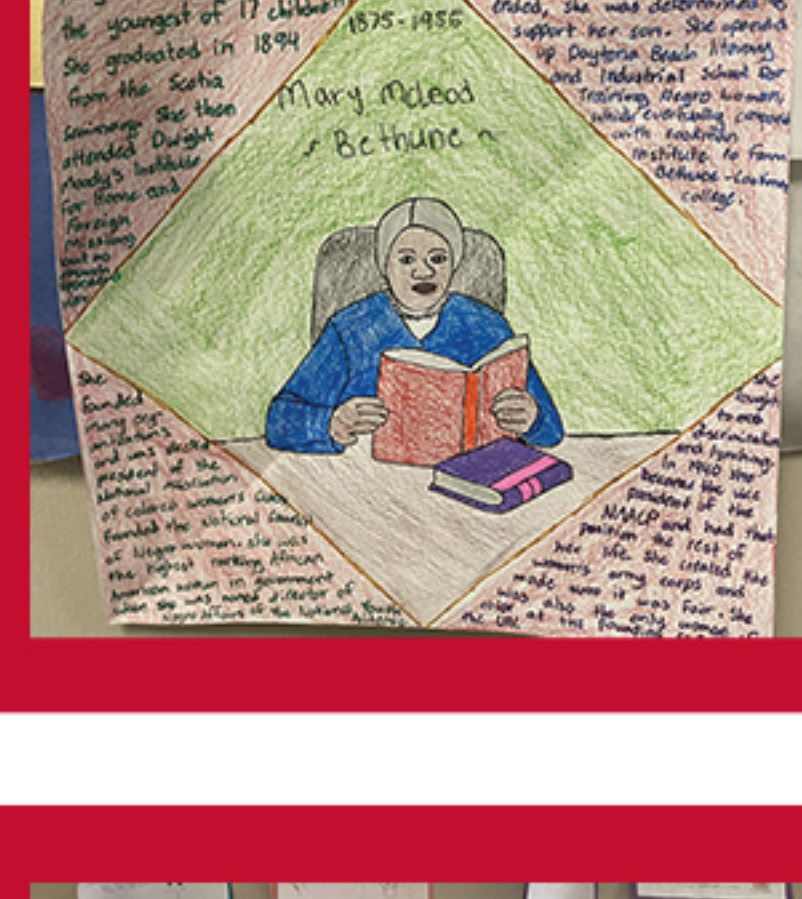 the youngest of 17 children
She graduated in 1894
from the Scotia
Seminary. She then
attended Dwight
Moody's Institute
for Home and
Foreign
Missions
but no
1875-1955
Mary McLeod
Bethune
ended, she was determined to
support her son. She opened
up Daytona Beach literary
and Industrial School for
Training Negro Women,
which eventually
with
institute to form
Bethune-
college.
She
founded
many org-
anizations
and was elected
president of the
National Association
of Colored Women's Clubs
founded the National Council
of Negro women. She was
the highest ranking African
American woman in government
when she was named director of
Negro Affairs of the National Youth
She
fought
to end
discrimination
and lynching.
In 1940 she
became the vice
president of the
NAACP and had that
position the rest of
her life. She created the
womens army corps and
made sure it was fair. She
was also the only woman of
color at the founding